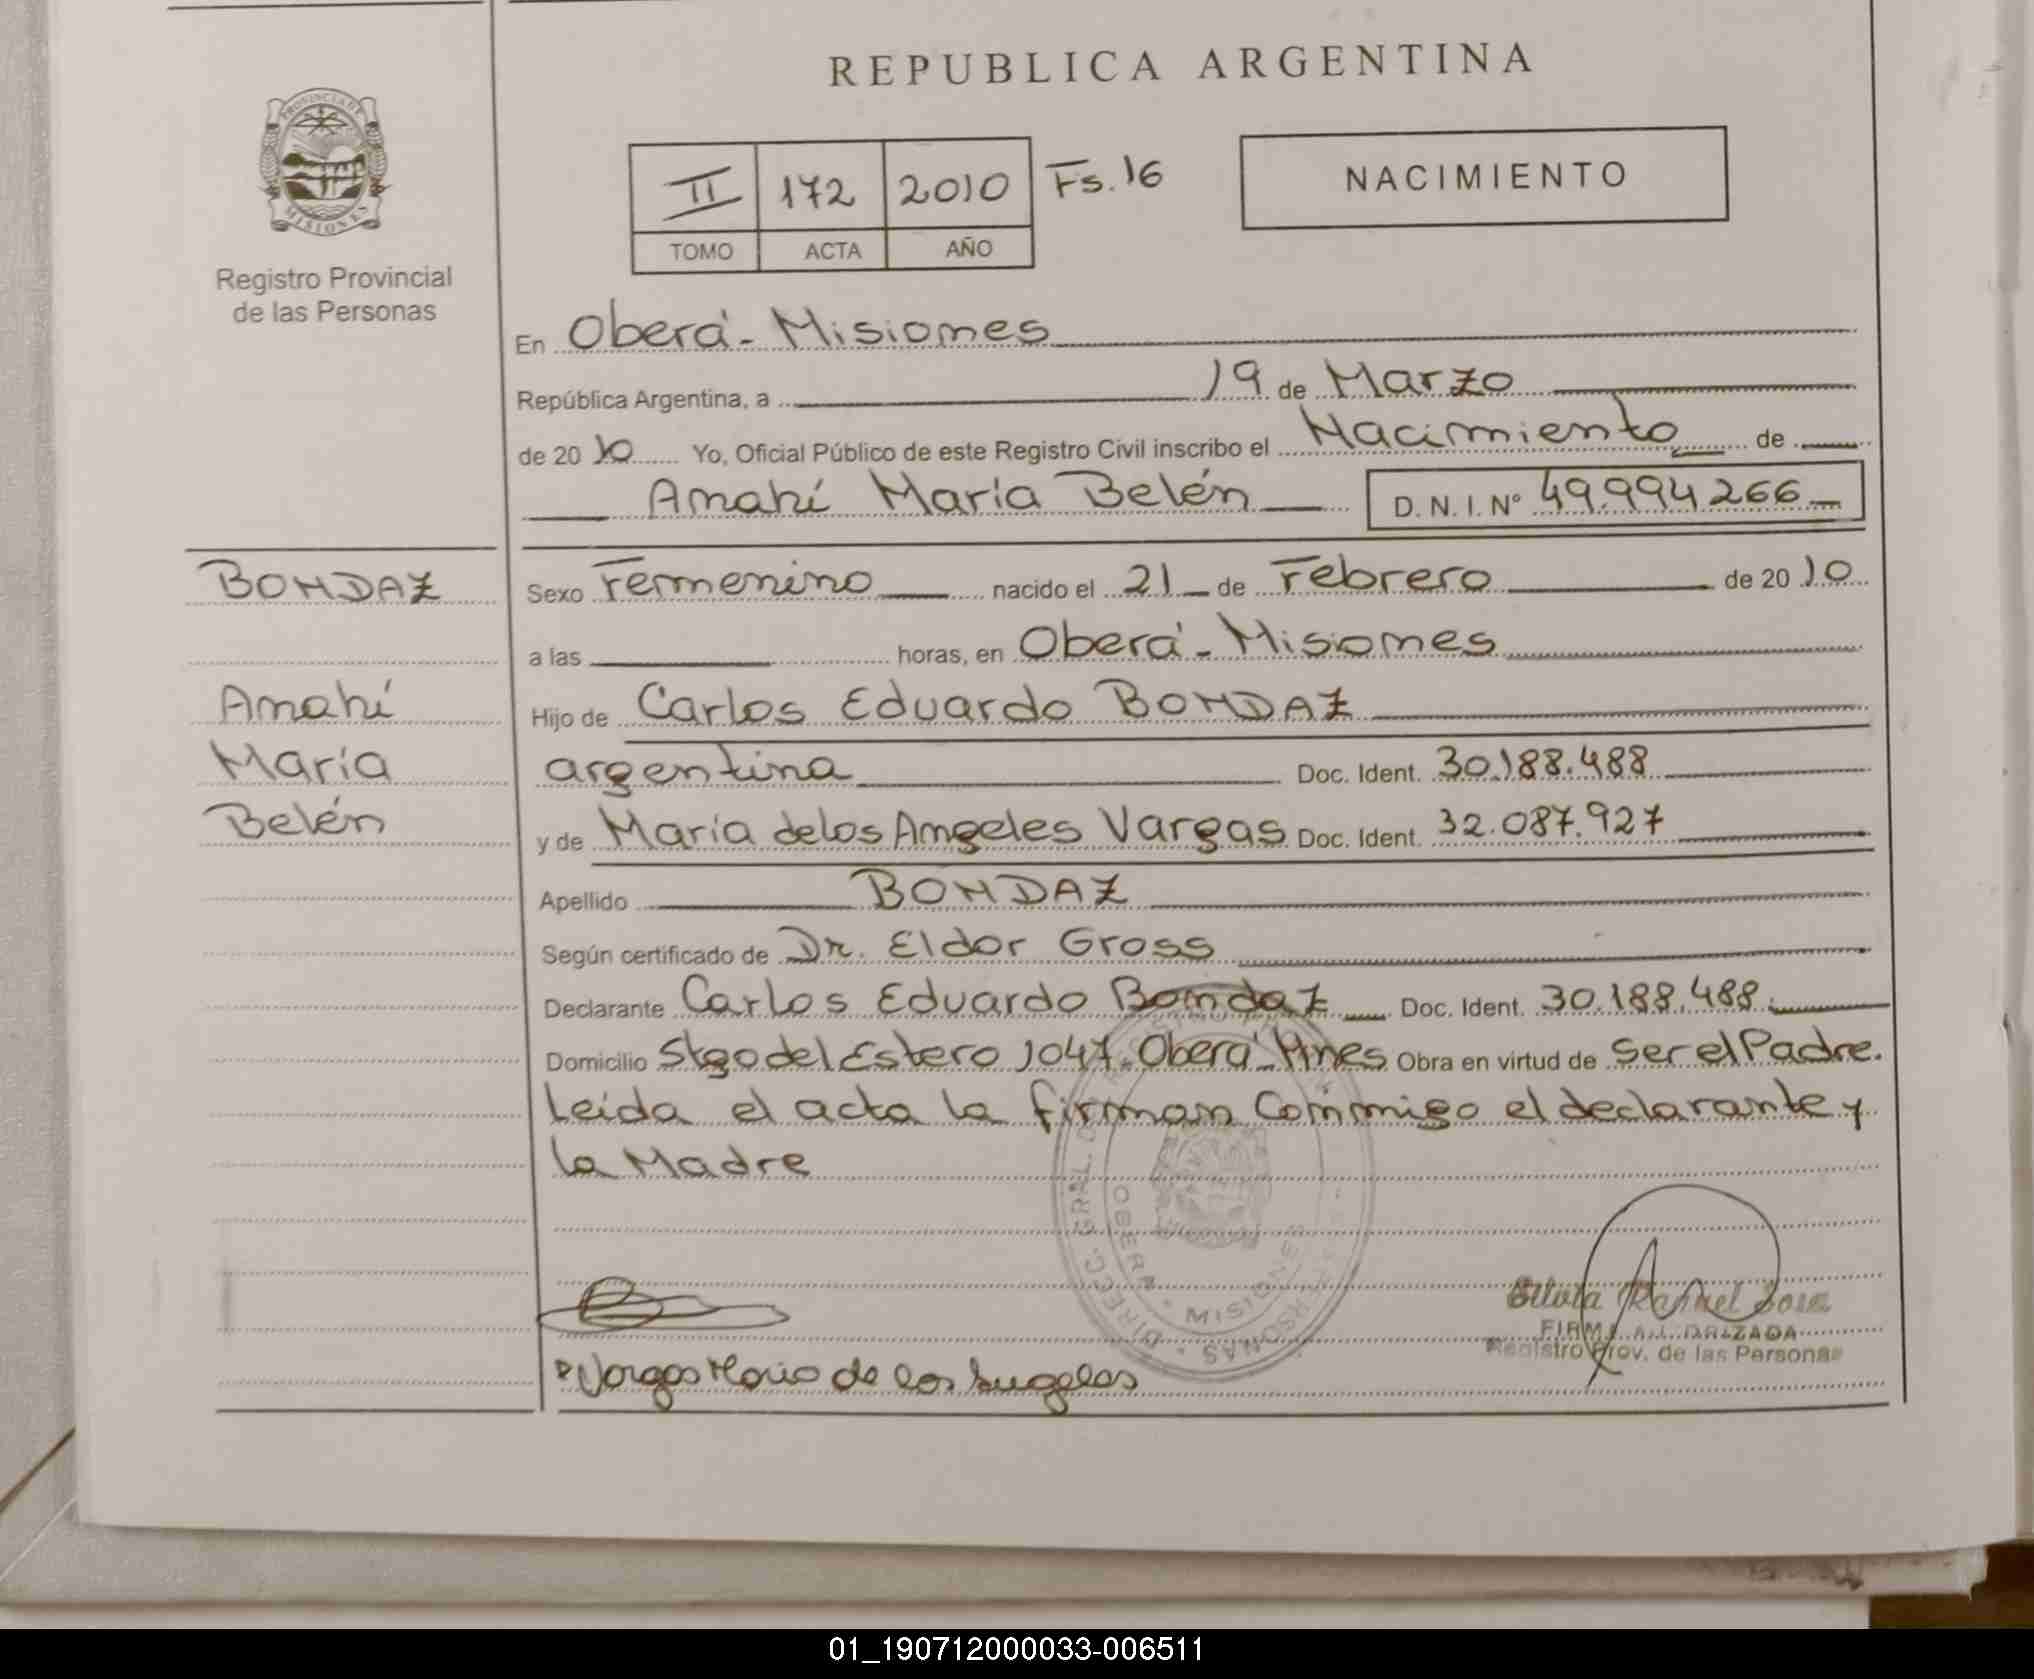 REPUBLICA ARGENTINA
PROVINCIA DE
MISIONES
Registro Provincial
de las Personas
II 172 2010 Fs. 16
TOMO ACTA AÑO
NACIMIENTO
En Oberá - Misiones
República Argentina, a 19 de Marzo
de 2010 Yo, Oficial Público de este Registro Civil inscribo el Nacimiento de
Anahí María Belén D.N.I. Nº 49.994.266
BONDAZ
Anahí
María
Belén
Sexo Femenino nacido el 21 de Febrero de 2010
a las horas, en Oberá - Misiones
Hijo de Carlos Eduardo BONDAZ
argentina Doc. Ident. 30.188.488
y de María de los Angeles Vargas Doc. Ident. 32.087.927
Apellido BONDAZ
Según certificado de Dr. Eldor Gross
Declarante Carlos Eduardo Bondaz Doc. Ident. 30.188.488.
Domicilio Stgo del Estero 1047. Oberá - Mnes Obra en virtud de ser el Padre.
Leída el acta la firman Conmigo el declarante y
la Madre
DIRECC. GRAL. DE PERSONAS
OBERA - MISIONES
Vargas Maria de los Angeles
FIRMA AUTORIZADA
Registro Prov. de las Personas
01_190712000033-006511